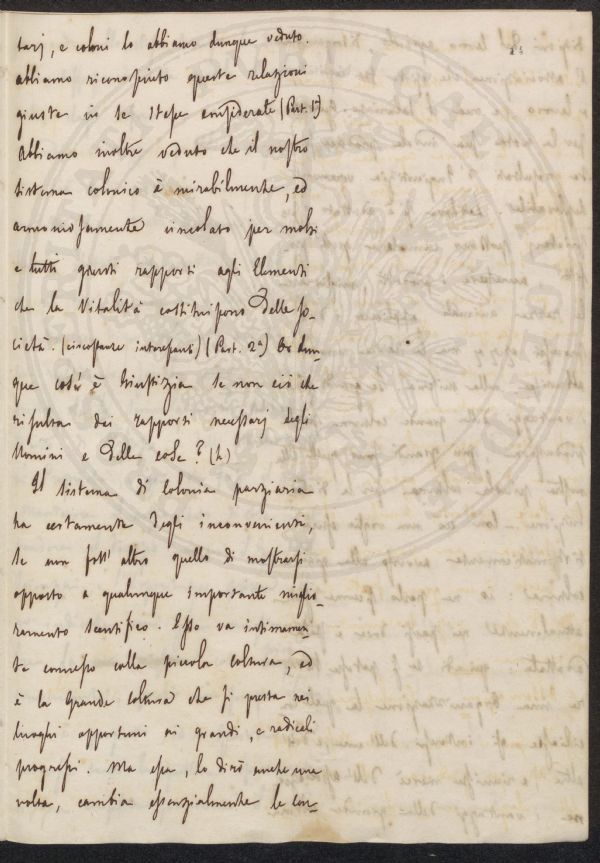 tarj, e coloni lo abbiamo dunque veduto.
Abbiamo riconosciuto queste relazioni
giuste in se stesse considerate (Part. 1ª)
Abbiamo inoltre veduto che il nostro
sistema colonico è mirabilmente, ed
armoniosamente vincolato per molti
e tutti questi rapporti agli Elementi
che la Vitalità costituiscono delle so-
cietà. (circostanze interessanti) (Part. 2ª) Or dun-
que cos' è Giustizia se non ciò che
risulta dai rapporti necessarj degli
Uomini e delle cose? (h)
Il sistema di colonia parziaria
ha certamente degli inconvenienti,
se non foss' altro quello di mostrarsi
opposto a qualunque importante miglio-
ramento scentifico. Esso va intimamen-
te connesso colla piccola coltura, ed
è la grande coltura che si presta nei
luoghi opportuni ai grandi, e radicali
progressi. Ma essa, lo dirò anche una
volta, cambia essenzialmente le con-